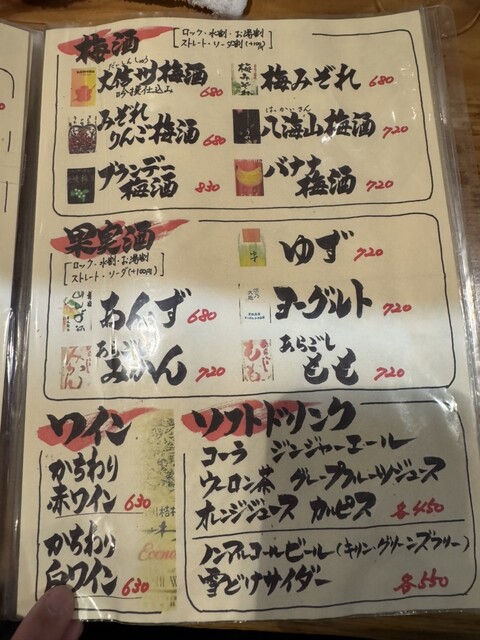 梅酒
ロック・水割・お湯割
ストレート・ソーダ割(+100円)
だいしんしゅう
大信州梅酒
吟醸仕込み 680
梅みぞれ 680
みぞれ
りんご梅酒 680
はっかいさん
八海山梅酒 720
ブランデー
梅酒 830
バナナ
梅酒 720
果実酒
ロック・水割・お湯割
ストレート・ソーダ(+100円)
ゆず 720
あんず 680
ヨーグルト 720
あらごし
みかん 720
あらごし
もも 720
ワイン
かちわり
赤ワイン 630
かちわり
白ワイン 630
ソフトドリンク
コーラ ジンジャーエール
ウーロン茶 グレープフルーツジュース
オレンジジュース カルピス 各450
ノンアルコールビール(キリン・グリーンズフリー)
雪どけサイダー 各550